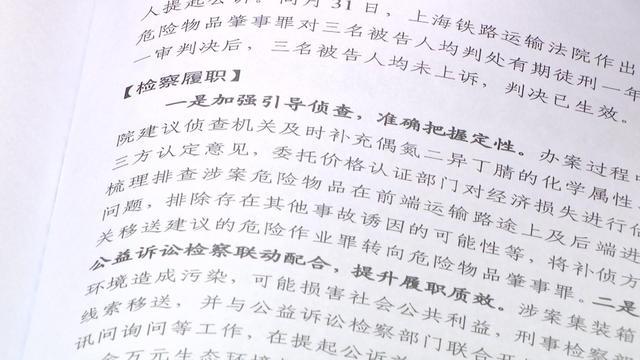 人提起公诉。同月31日，上海铁路运输法院作出
危险物品肇事罪对三名被告人均判处有期徒刑一年
一审判决后，三名被告人均未上诉，判决已生效。
【检察履职】
一是加强引导侦查，准确把握定性。办案过程中
院建议侦查机关及时补充偶氮二异丁腈的化学属性、
三方认定意见，委托价格认证部门对经济损失进行估
梳理排查涉案危险物品在前端运输路途上及后端进
问题，排除存在其他事故诱因的可能性等，将补侦方
关移送建议的危险作业罪转向危险物品肇事罪。二是
公益诉讼检察联动配合，提升履职质效。涉案集装箱
环境造成污染，可能损害社会公共利益，刑事检察
线索移送，并与公益诉讼检察部门联合
讯问询问等工作，在提起公诉
余万元生态环境